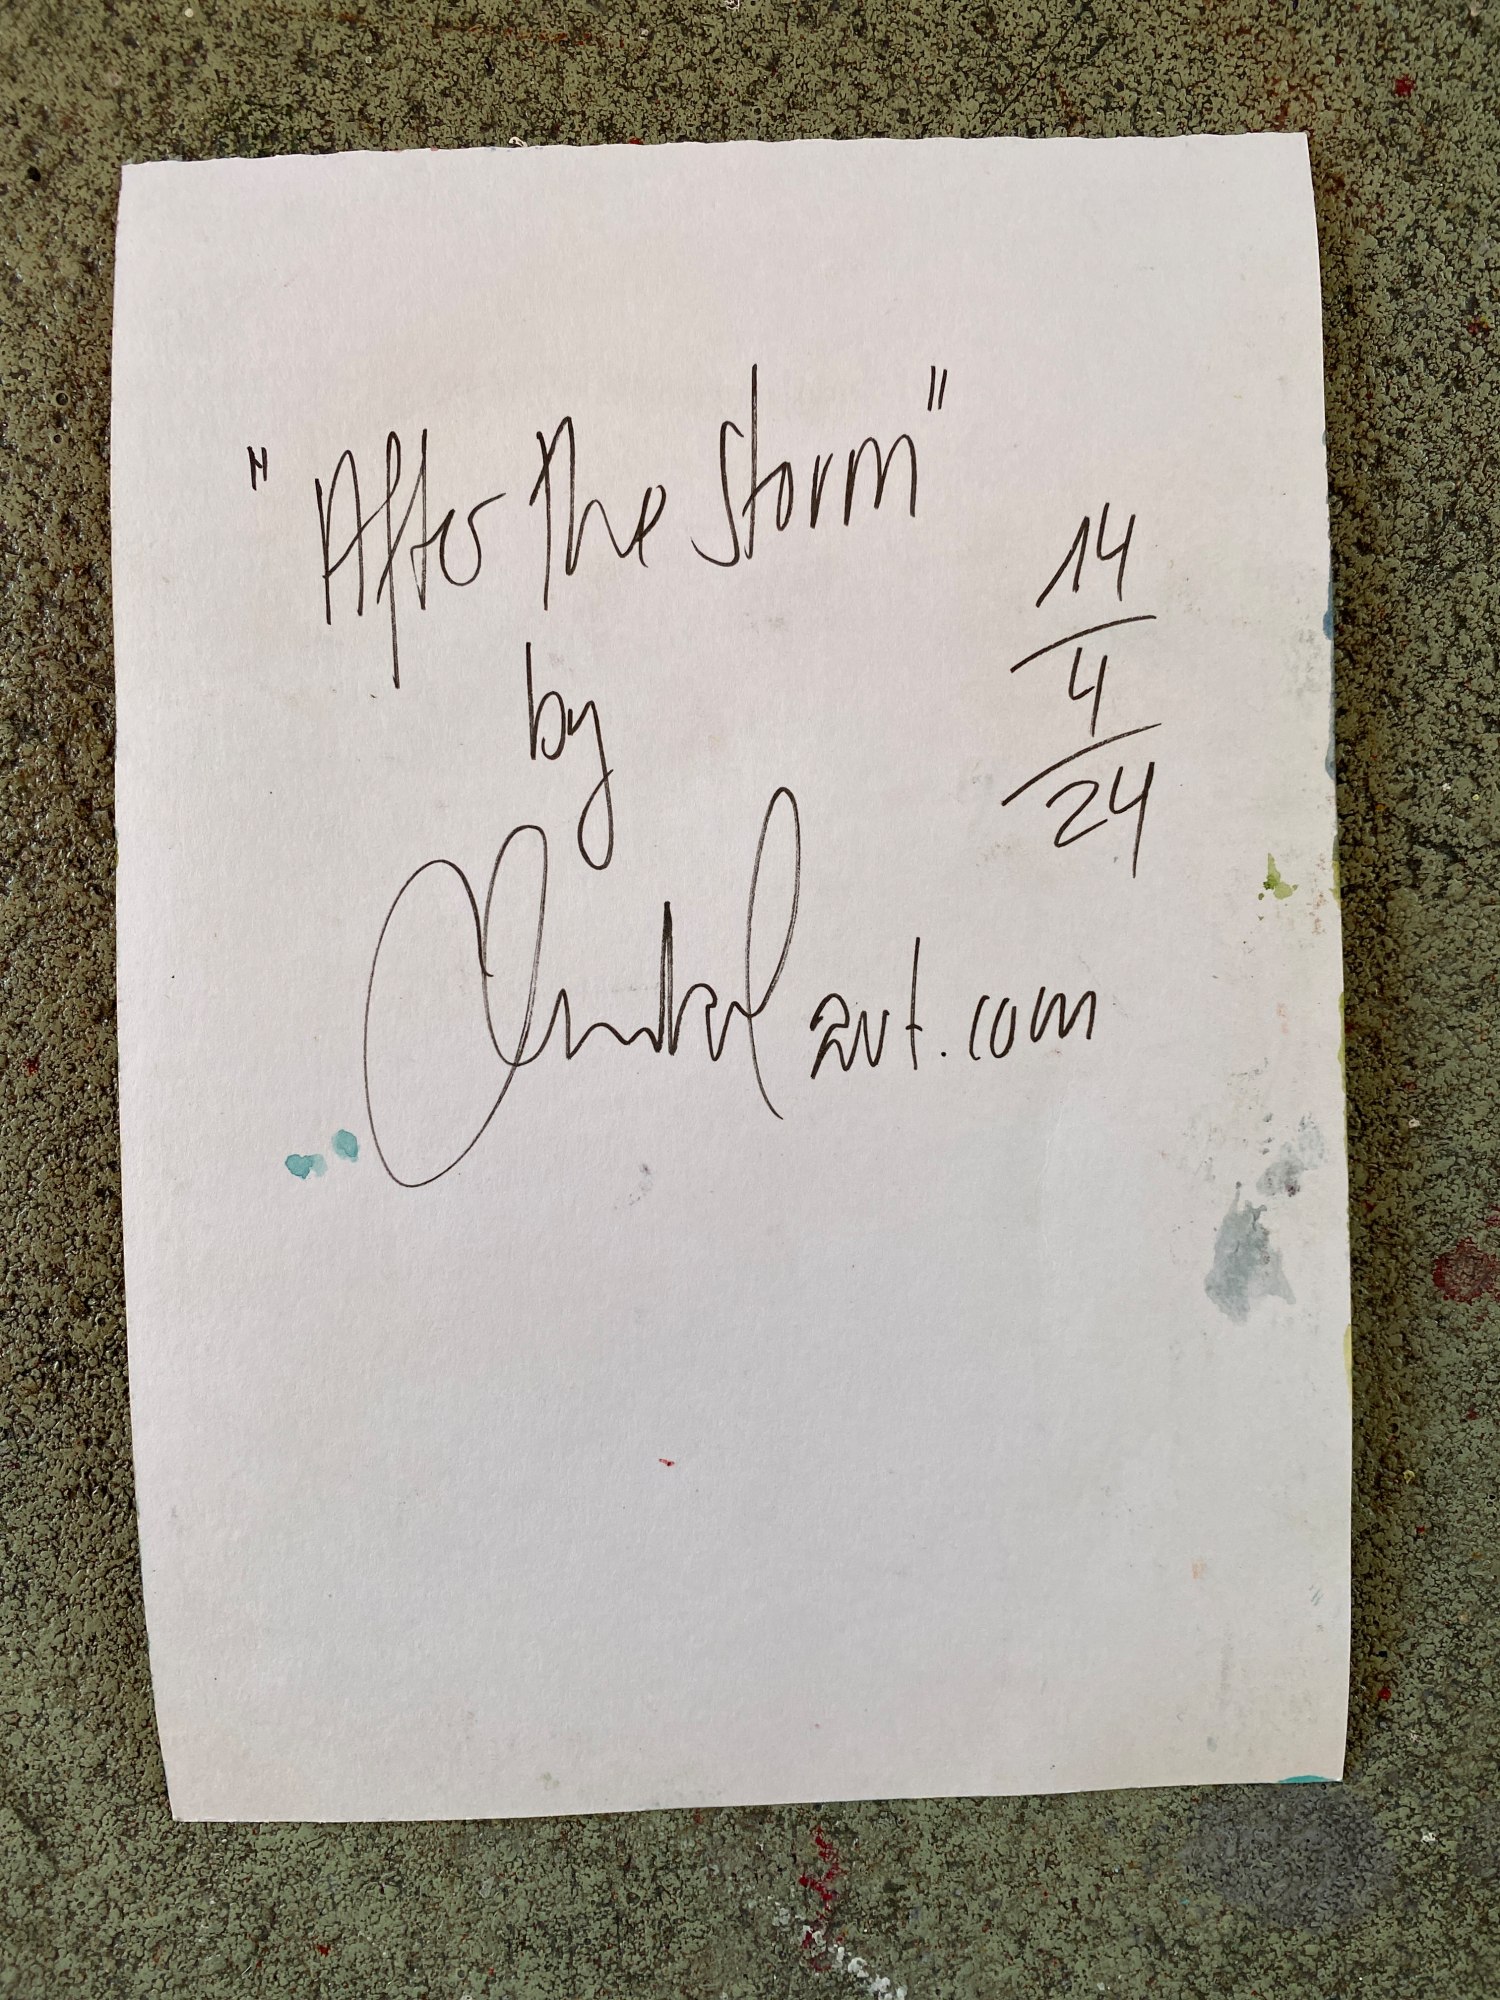 "After The Storm"
by
art.com
14
4
24